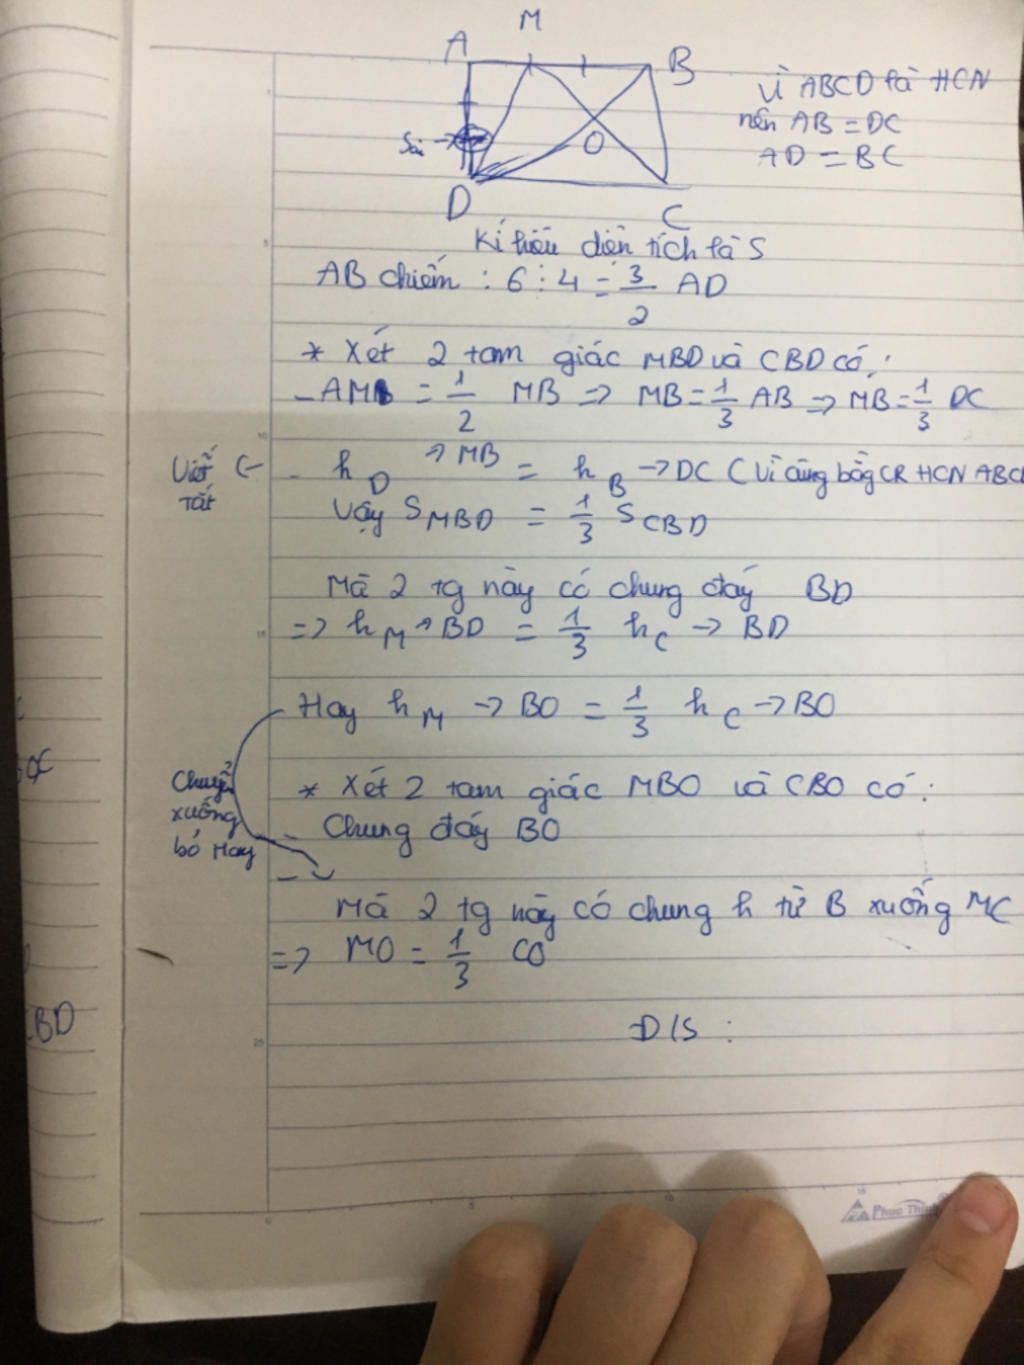 M
A
B
Vì ABCD là HCN
nên AB = DC
AD = BC
Sai →
O
D
C
Kí hiệu diện tích là S
AB chiếm : 6 : 4 = 3/2 AD
* Xét 2 tam giác MBD và CBD có :
- AM = 1/2 MB => MB = 1/3 AB => MB = 1/3 DC
Viết tắt
- h D → MB = h B → DC (Vì cùng bằng CR HCN ABC
Vậy S MBD = 1/3 S CBD
Mà 2 tg này có chung đáy BD
=> h M → BD = 1/3 h C → BD
Hay h M → BO = 1/3 h C → BO
Chuyển
xuống
bỏ Hay
* Xét 2 tam giác MBO và CBO có :
- Chung đáy BO
-
Mà 2 tg này có chung h từ B xuống MC
=> MO = 1/3 CO
BD
Đ/S :
5
10
15
25
0
5
10
15